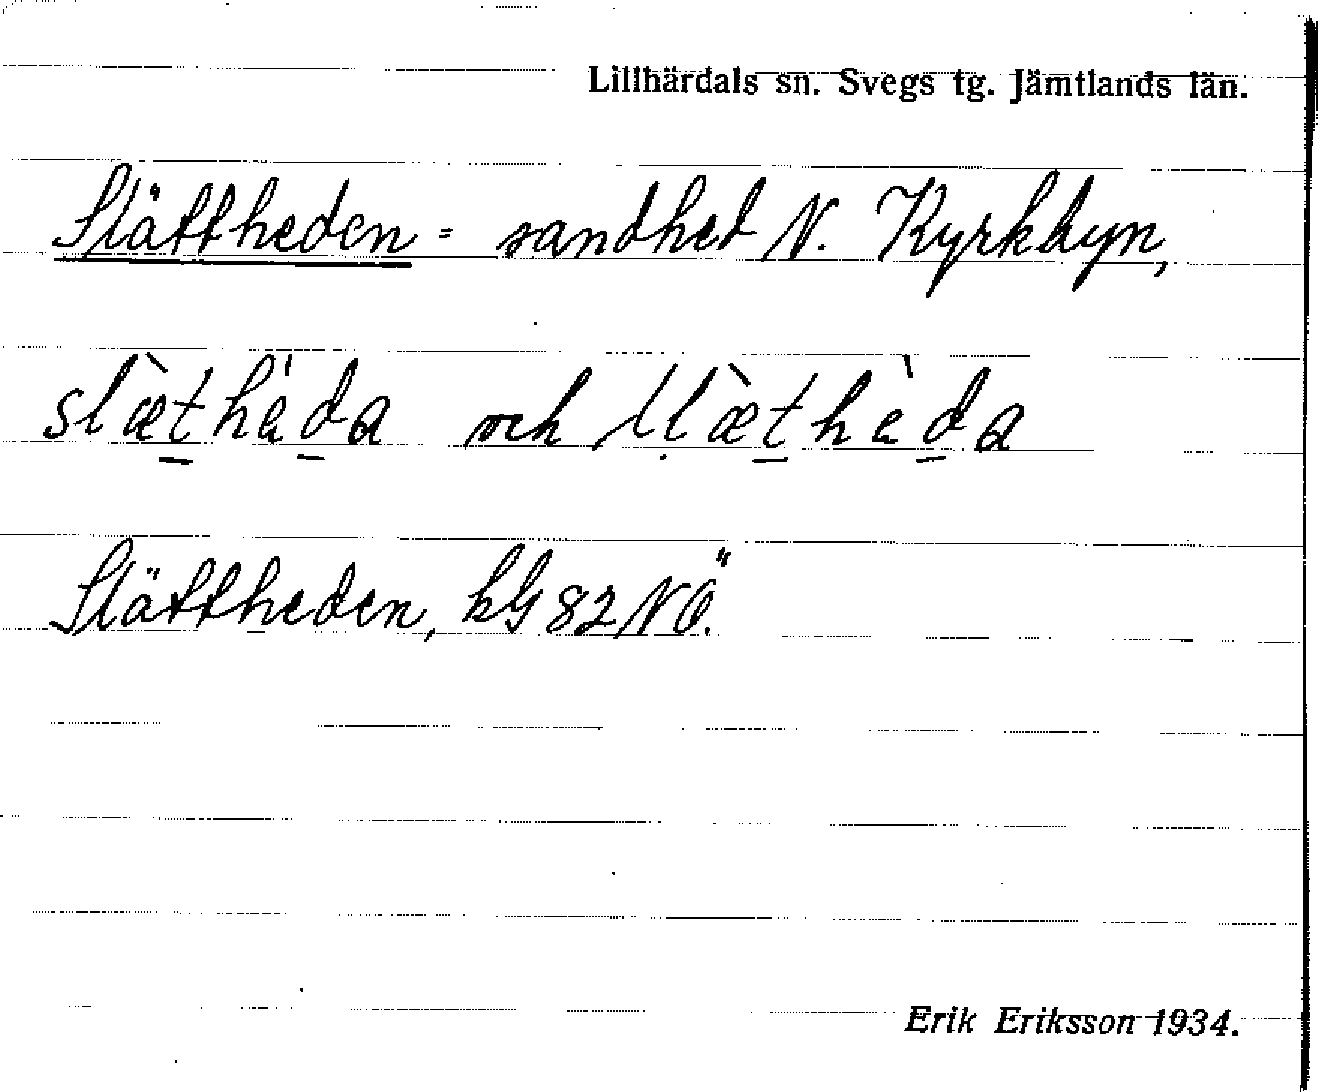 Lillhärdals sn. Svegs tg. Jämtlands län.
Slättheden = sandhed N. Kyrkbyn,
slæ̀t̲hèd̲a och ʃḷæ̀t̲hèd̲a
Slättheden, kG 82 NÖ.
Erik Eriksson 1934.